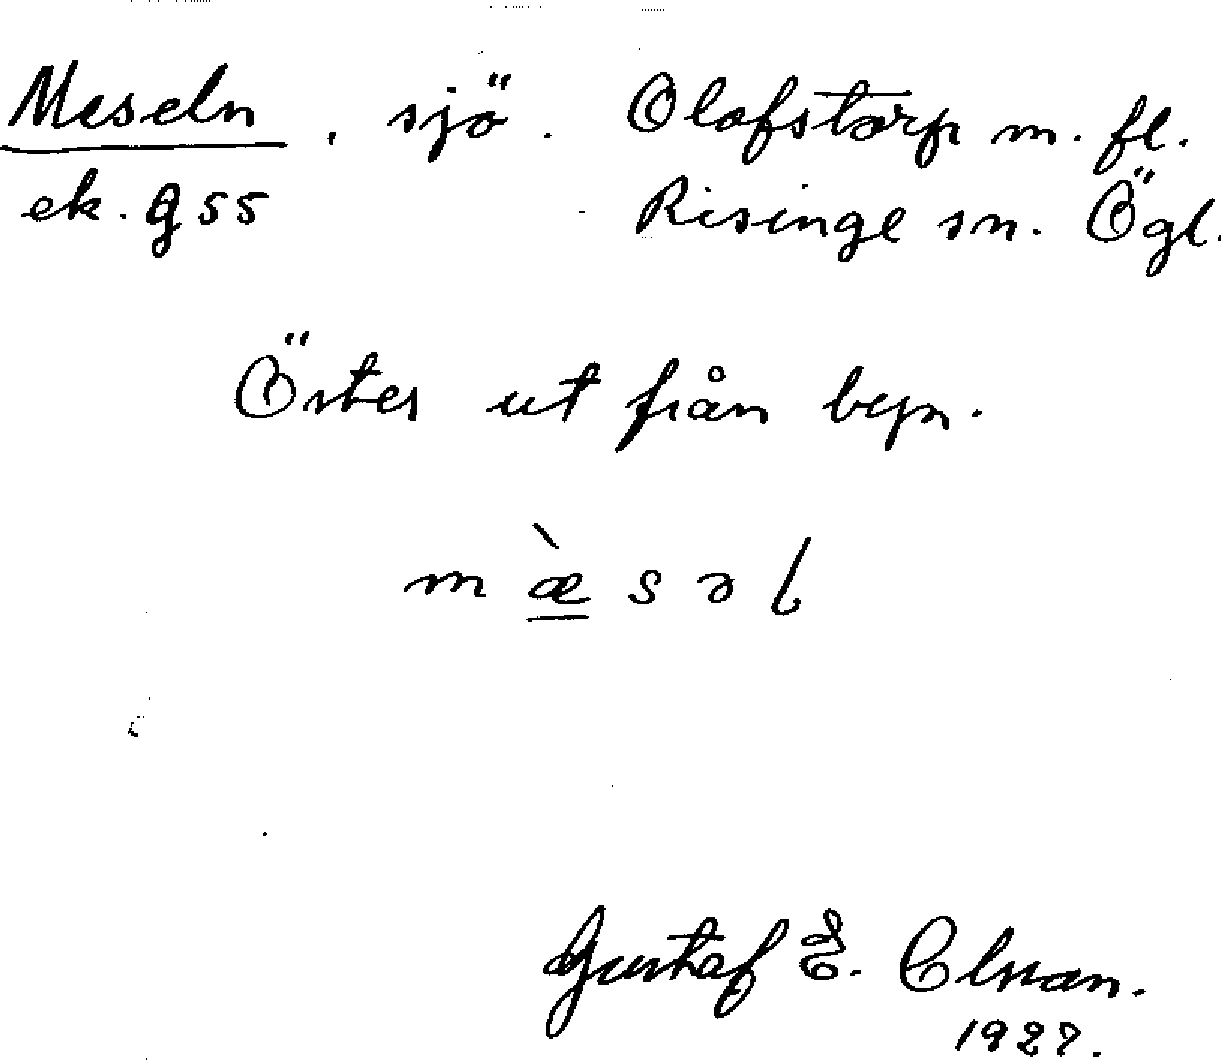 Meseln, sjö. Olofstorp m. fl.
ek. 9 55 Risinge sn. Ögl.
Öster ut från byn.
m æ̀ s ə l
Gustaf E. Olsson.
1927.